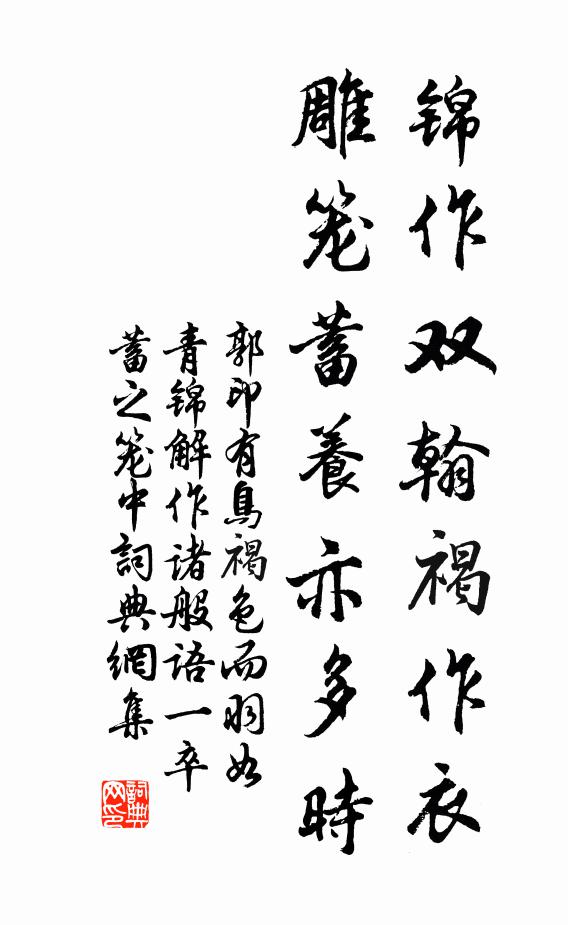 锦作双翰褐作衣
雕笼蓄養亦多時
郭印有鳥褐色而羽如
青锦解作诸般语一卒
蓄之笼中詞典網集
詞典网印